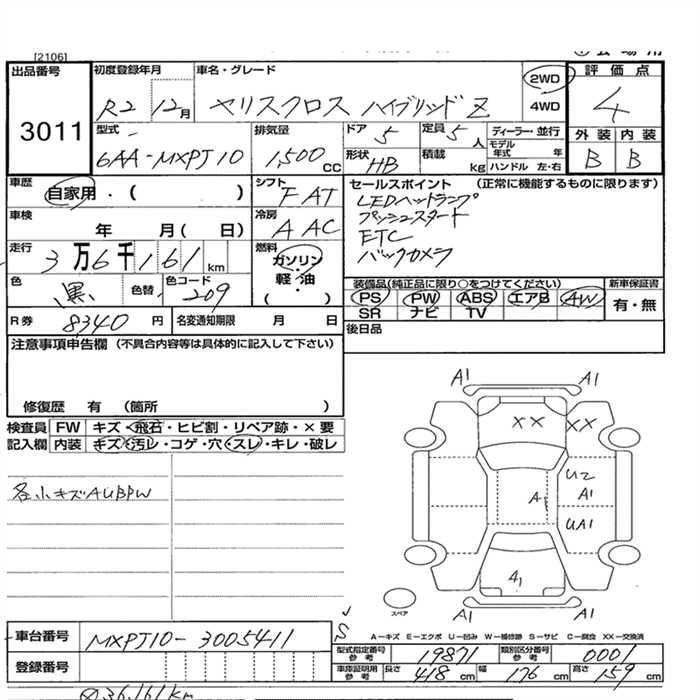 [2106]
出品番号
3011
初度登録年月
R2 12月
車名・グレード
ヤリスクロス ハイブリッドZ
2WD
4WD
評価点
4
外装 内装
B B
型式
6AA-MXPJ10
排気量
1,500 CC
ドア 5
定員 5 人
形状 HB
積載 kg
ディーラー・並行
モデル年式 年
ハンドル 左・右
車歴
自家用・( )
シフト
F AT
車検
年 月(日)
冷房
A AC
走行
3万6千161km
燃料
ガソリン・
軽・油
( )
色
黒
色替
色コード
209
R券 8340 円
名変通知期限 月 日
セールスポイント (正常に機能するものに限ります)
LEDヘッドランプ
プッシュスタート
ETC
バックカメラ
装備品(純正品に限り○をつけてください)
PS PW ABS エアB AW
SR ナビ TV
新車保証書
有・無
後日品
注意事項申告欄 (不具合内容等は具体的に記入して下さい)
修復歴 有 (箇所 )
検査員 FW キズ・飛石・ヒビ割・リペア跡・×要
記入欄 内装 キズ・汚レ・コゲ・穴・スレ・キレ・破レ
各小キズAUBPW
A1 A1
XX XX
U2
A1
A1
UA1
A1
A1 A1
スペア
S
A―キズ E―エクボ U―凹み W―補修跡 S―サビ C―腐食 XX―交換済
車台番号 MXPJ10-3005411
登録番号
型式指定番号
参考
19871
類別区分番号
参考
0001
車庫証明用
参考
長さ 418 cm 幅 176 cm 高さ 159 cm
36,161km